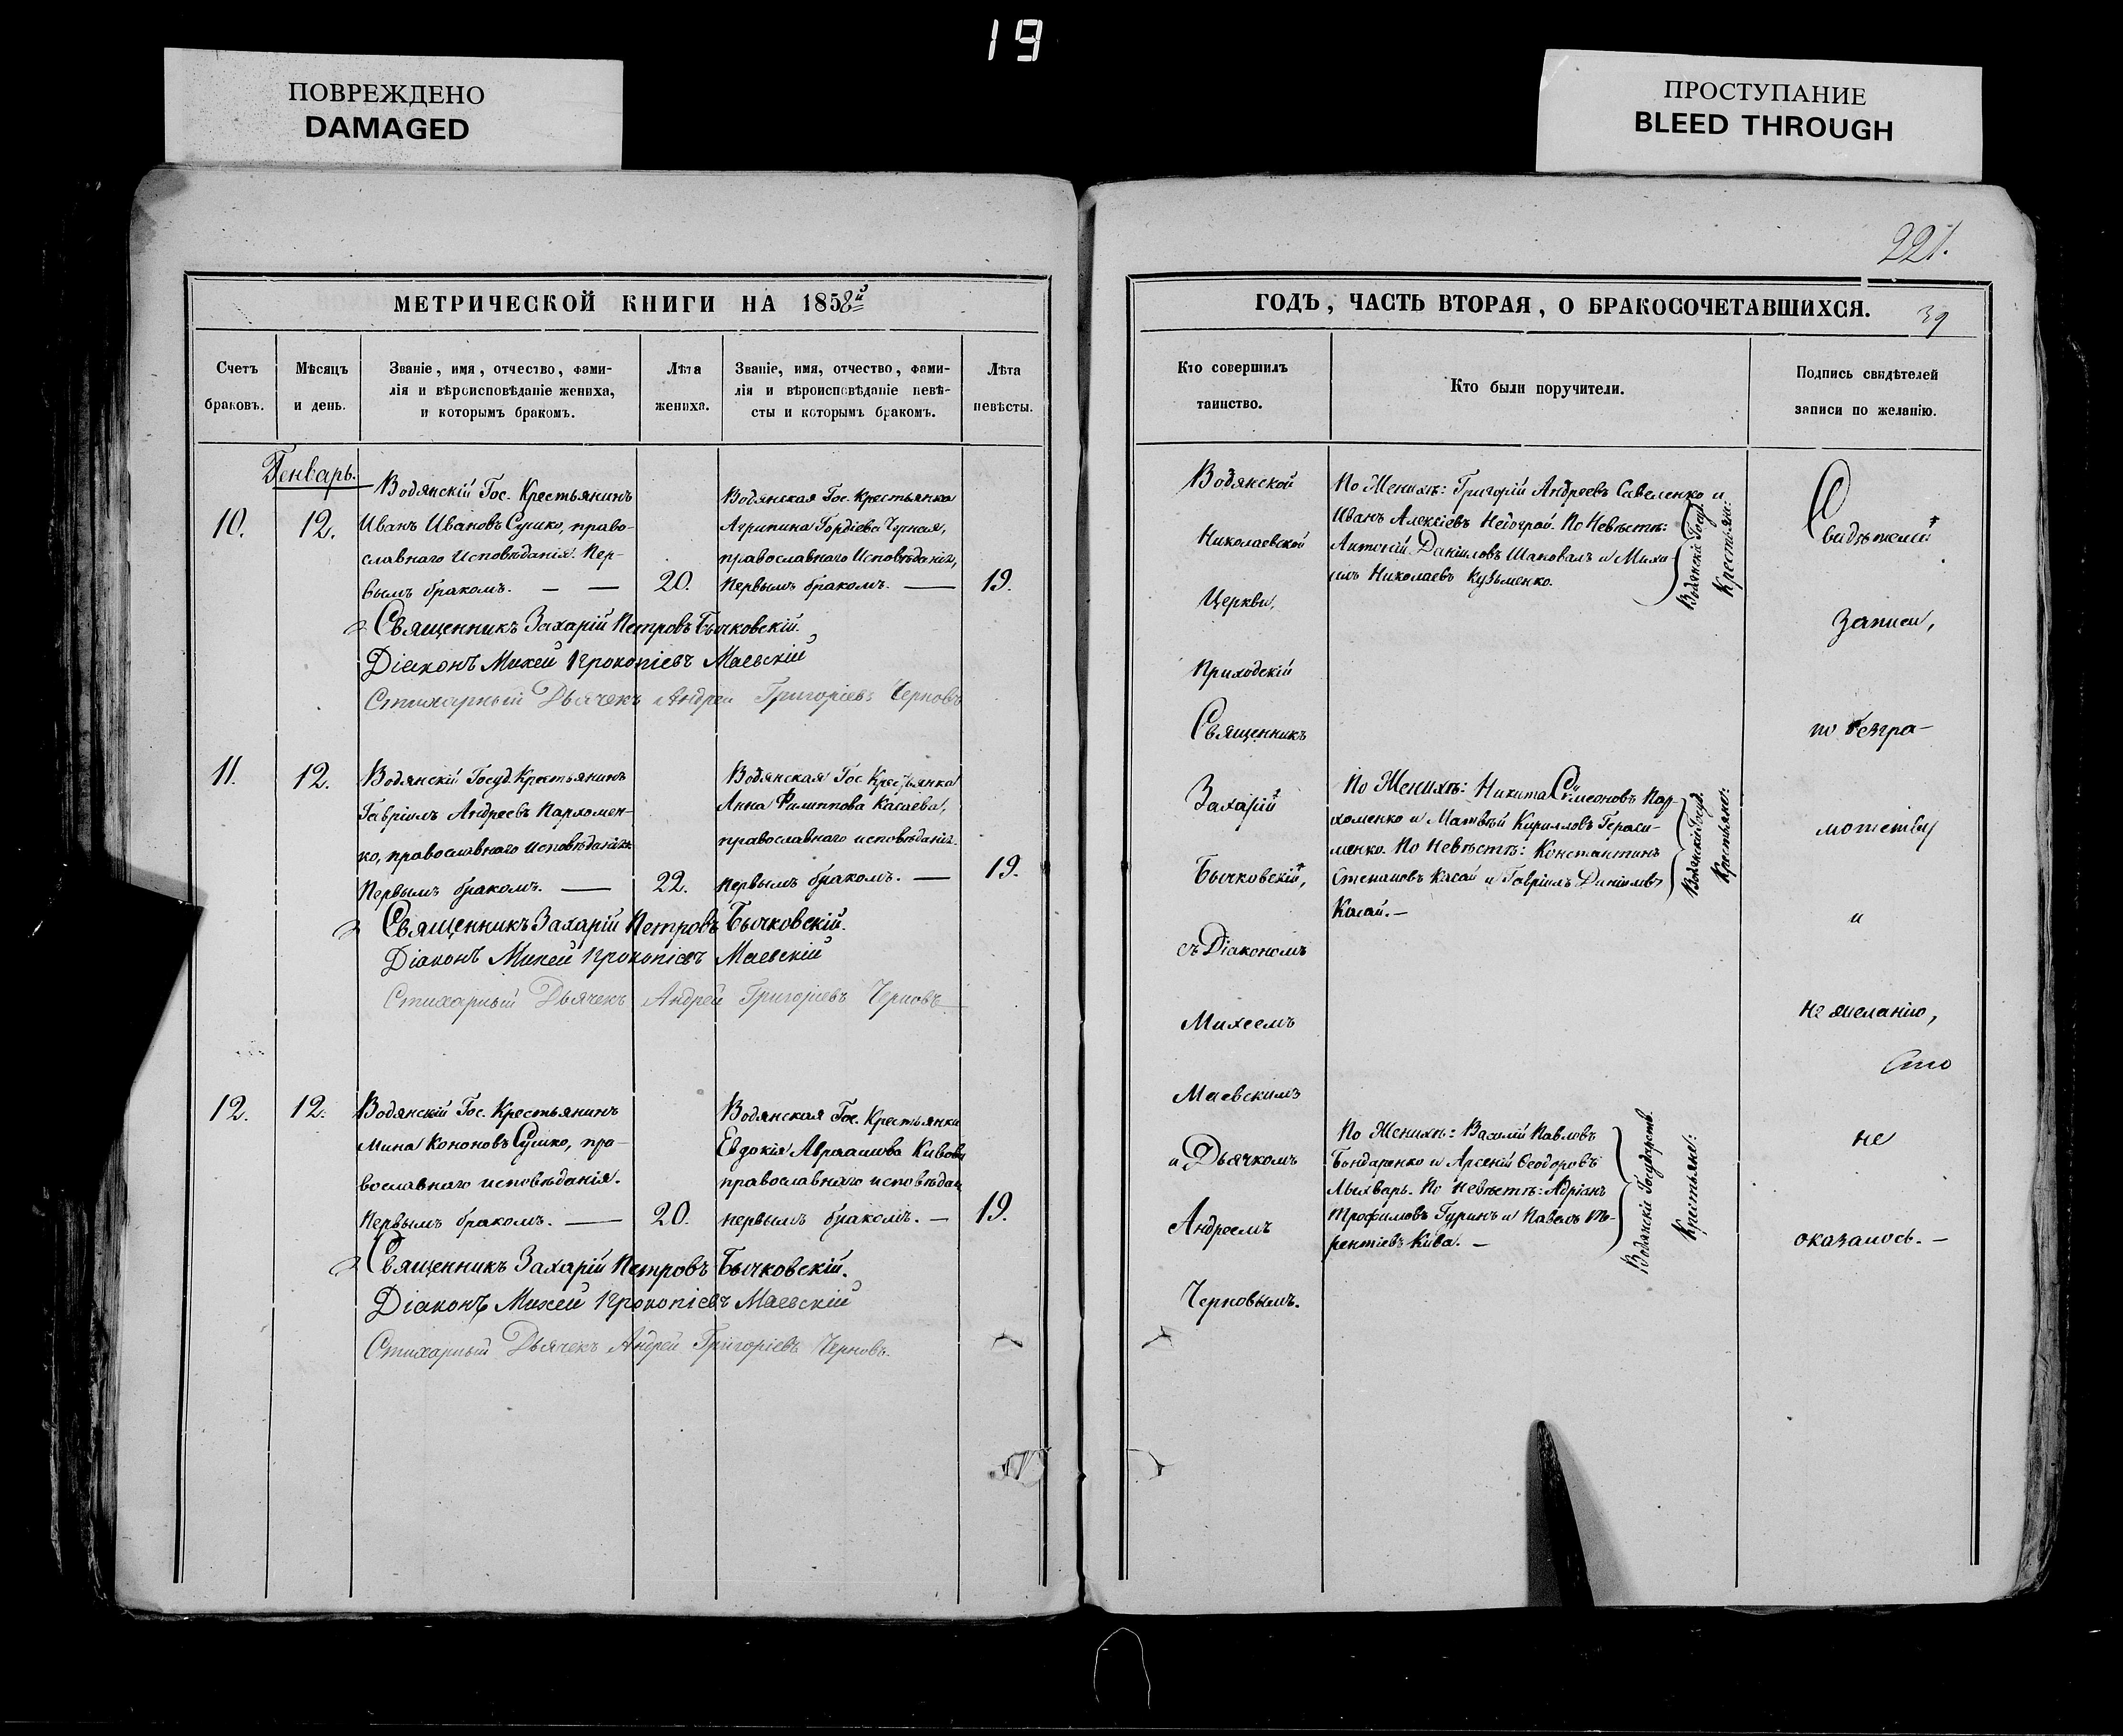 19
ПОВРЕЖДЕНО
DAMAGED
ПРОСТУПАНИЕ
BLEED THROUGH
МЕТРИЧЕСКОЙ КНИГИ НА 1858й
Счетъ браковъ.
Мѣсяцъ и день.
Званіе, имя, отчество, фами-
лія и вѣроисповѣданіе жениха,
и которымъ бракомъ.
Лѣта жениха.
Званіе, имя, отчество, фами-
лія и вѣроисповѣданіе невѣ-
сты и которымъ бракомъ.
Лѣта невѣсты.
Генварь.
10.
12.
Водянскій Гос. Крестьянинъ
Иванъ Ивановъ Сушко, право-
славнаго Исповѣданія. Пер-
вымъ бракомъ. — —
20.
Водянская Гос. Крестьянка
Агрипина Гордіева Черная,
православнаго Исповѣданія,
Первымъ бракомъ. —
19.
Священникъ Захарій Петровъ Бычковскій.
Діаконъ Михей Прокопіевъ Маевскій
Стихарный Дьячекъ Андрей Григоріевъ Черновъ
11.
12.
Водянскій Госуд. Крестьянинъ
Гавріилъ Андреевъ Пархомен-
ко, православнаго исповѣданія
Первымъ бракомъ. —
22.
Водянская Гос. Крестьянка
Анна Филиппова Касаева,
православнаго исповѣданія.
первымъ бракомъ. —
19.
Священникъ Захарій Петровъ Бычковскій.
Діаконъ Михей Прокопіевъ Маевскій
Стихарный Дьячекъ Андрей Григоріевъ Черновъ
12.
12.
Водянскій Гос. Крестьянинъ
Мина Кононовъ Сушко, пра-
вославнаго исповѣданія.
Первымъ бракомъ. —
20.
Водянская Гос. Крестьянка
Евдокія Авраамова Кивова
православнаго исповѣдан
первымъ бракомъ. —
19.
Священникъ Захарій Петровъ Бычковскій.
Діаконъ Михей Прокопіевъ Маевскій
Стихарный Дьячекъ Андрей Григоріевъ Черновъ.
221.
ГОДЪ, ЧАСТЬ ВТОРАЯ, О БРАКОСОЧЕТАВШИХСЯ.
39
Кто совершилъ
таинство.
Кто были поручители.
Подпись свидѣтелей
записи по желанію.
Водянской
Николаевской
Церкви,
Приходскій
Священникъ
Захарій
Бычковскій,
съ Діакономъ
Михеемъ
Маевскимъ
и Дьячкомъ
Андреемъ
Черновымъ.
По Женихѣ: Григорій Андреевъ Савеленко и
Иванъ Алексіевъ Недограй. По Невѣстѣ:
Антоній Даніиловъ Шаповалъ и Миха
илъ Николаевъ Кузьменко.
Водянскіе Госуд.
Крестьян:
По Женихѣ: Никита Симеоновъ Пар-
хоменко и Матвѣй Кирилловъ Гераси-
менко. По Невѣстѣ: Константинъ
Степановъ Касай и Гавріилъ Даніиловъ
Касай. —
Водянскіе Госуд.
Крестьяне:
По Женихѣ: Василій Павловъ
Бондаренко и Арсеній Ѳеодоровъ
Лыхварь. По Невѣстѣ: Адріанъ
Трофимовъ Гуринъ и Павелъ Те-
рентіевъ Кива. —
Водянскіе Государств.
Крестьяне:
Свидѣтелей
записи,
по безгра-
мотству
и
не желанію,
не
оказалось. —